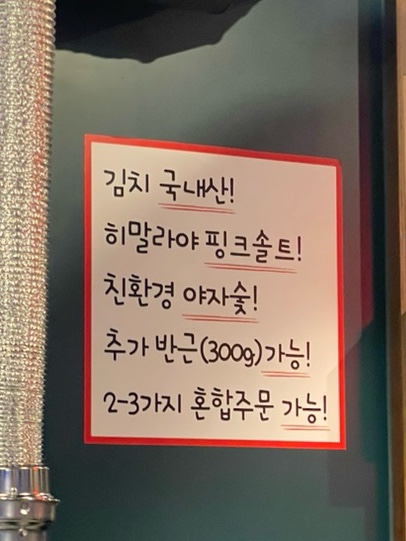 김치 국내산!
히말라야 핑크솔트!
친환경 야자숯!
추가 반근(300g)가능!
2-3가지 혼합주문 가능!